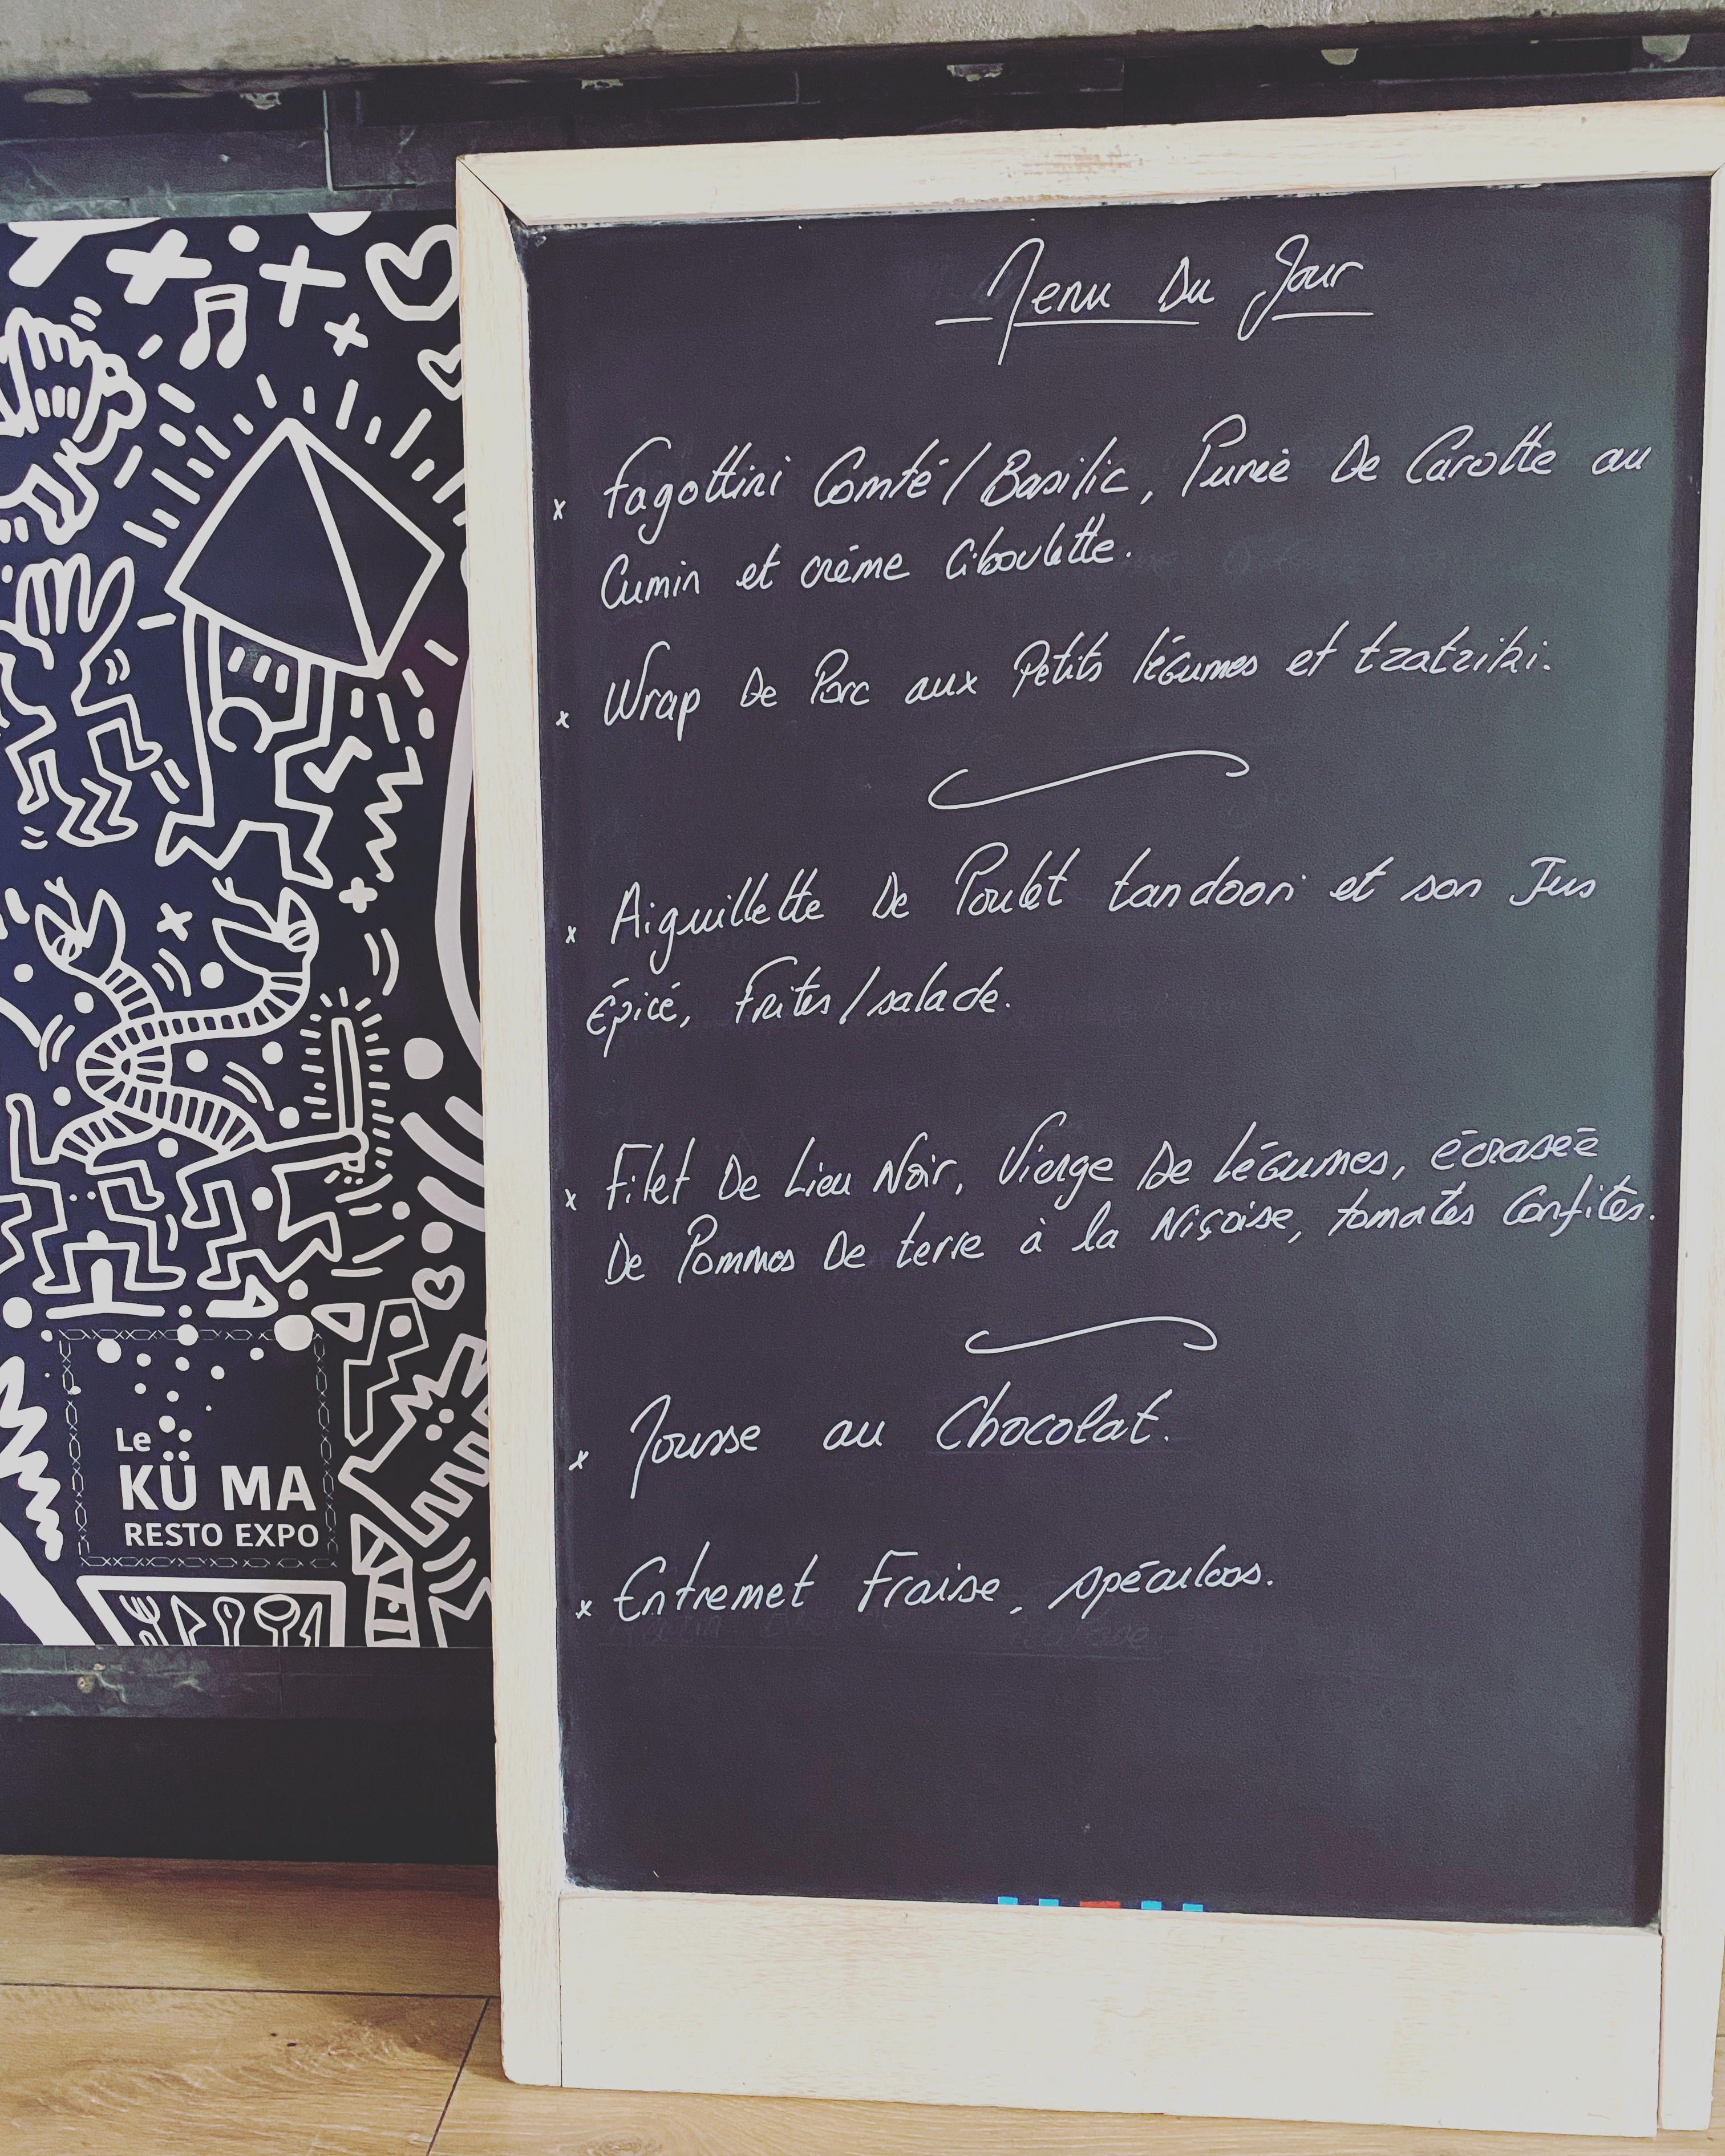 Menu Du Jour
x Fagottini Comté/Basilic, Purée De Carotte au
Cumin et crème Ciboulette.
x Wrap De Porc aux Petits légumes et tzatziki.
x Aiguillette De Poulet tandoori et son Jus
épicé, Frites/salade.
x Filet De Lieu Noir, Vierge De légumes, écrasée
De Pommes De terre à la Niçoise, tomates Confites.
x Mousse au Chocolat.
x Entremet Fraise, spéculoos.
Le
KÜ MA
RESTO EXPO